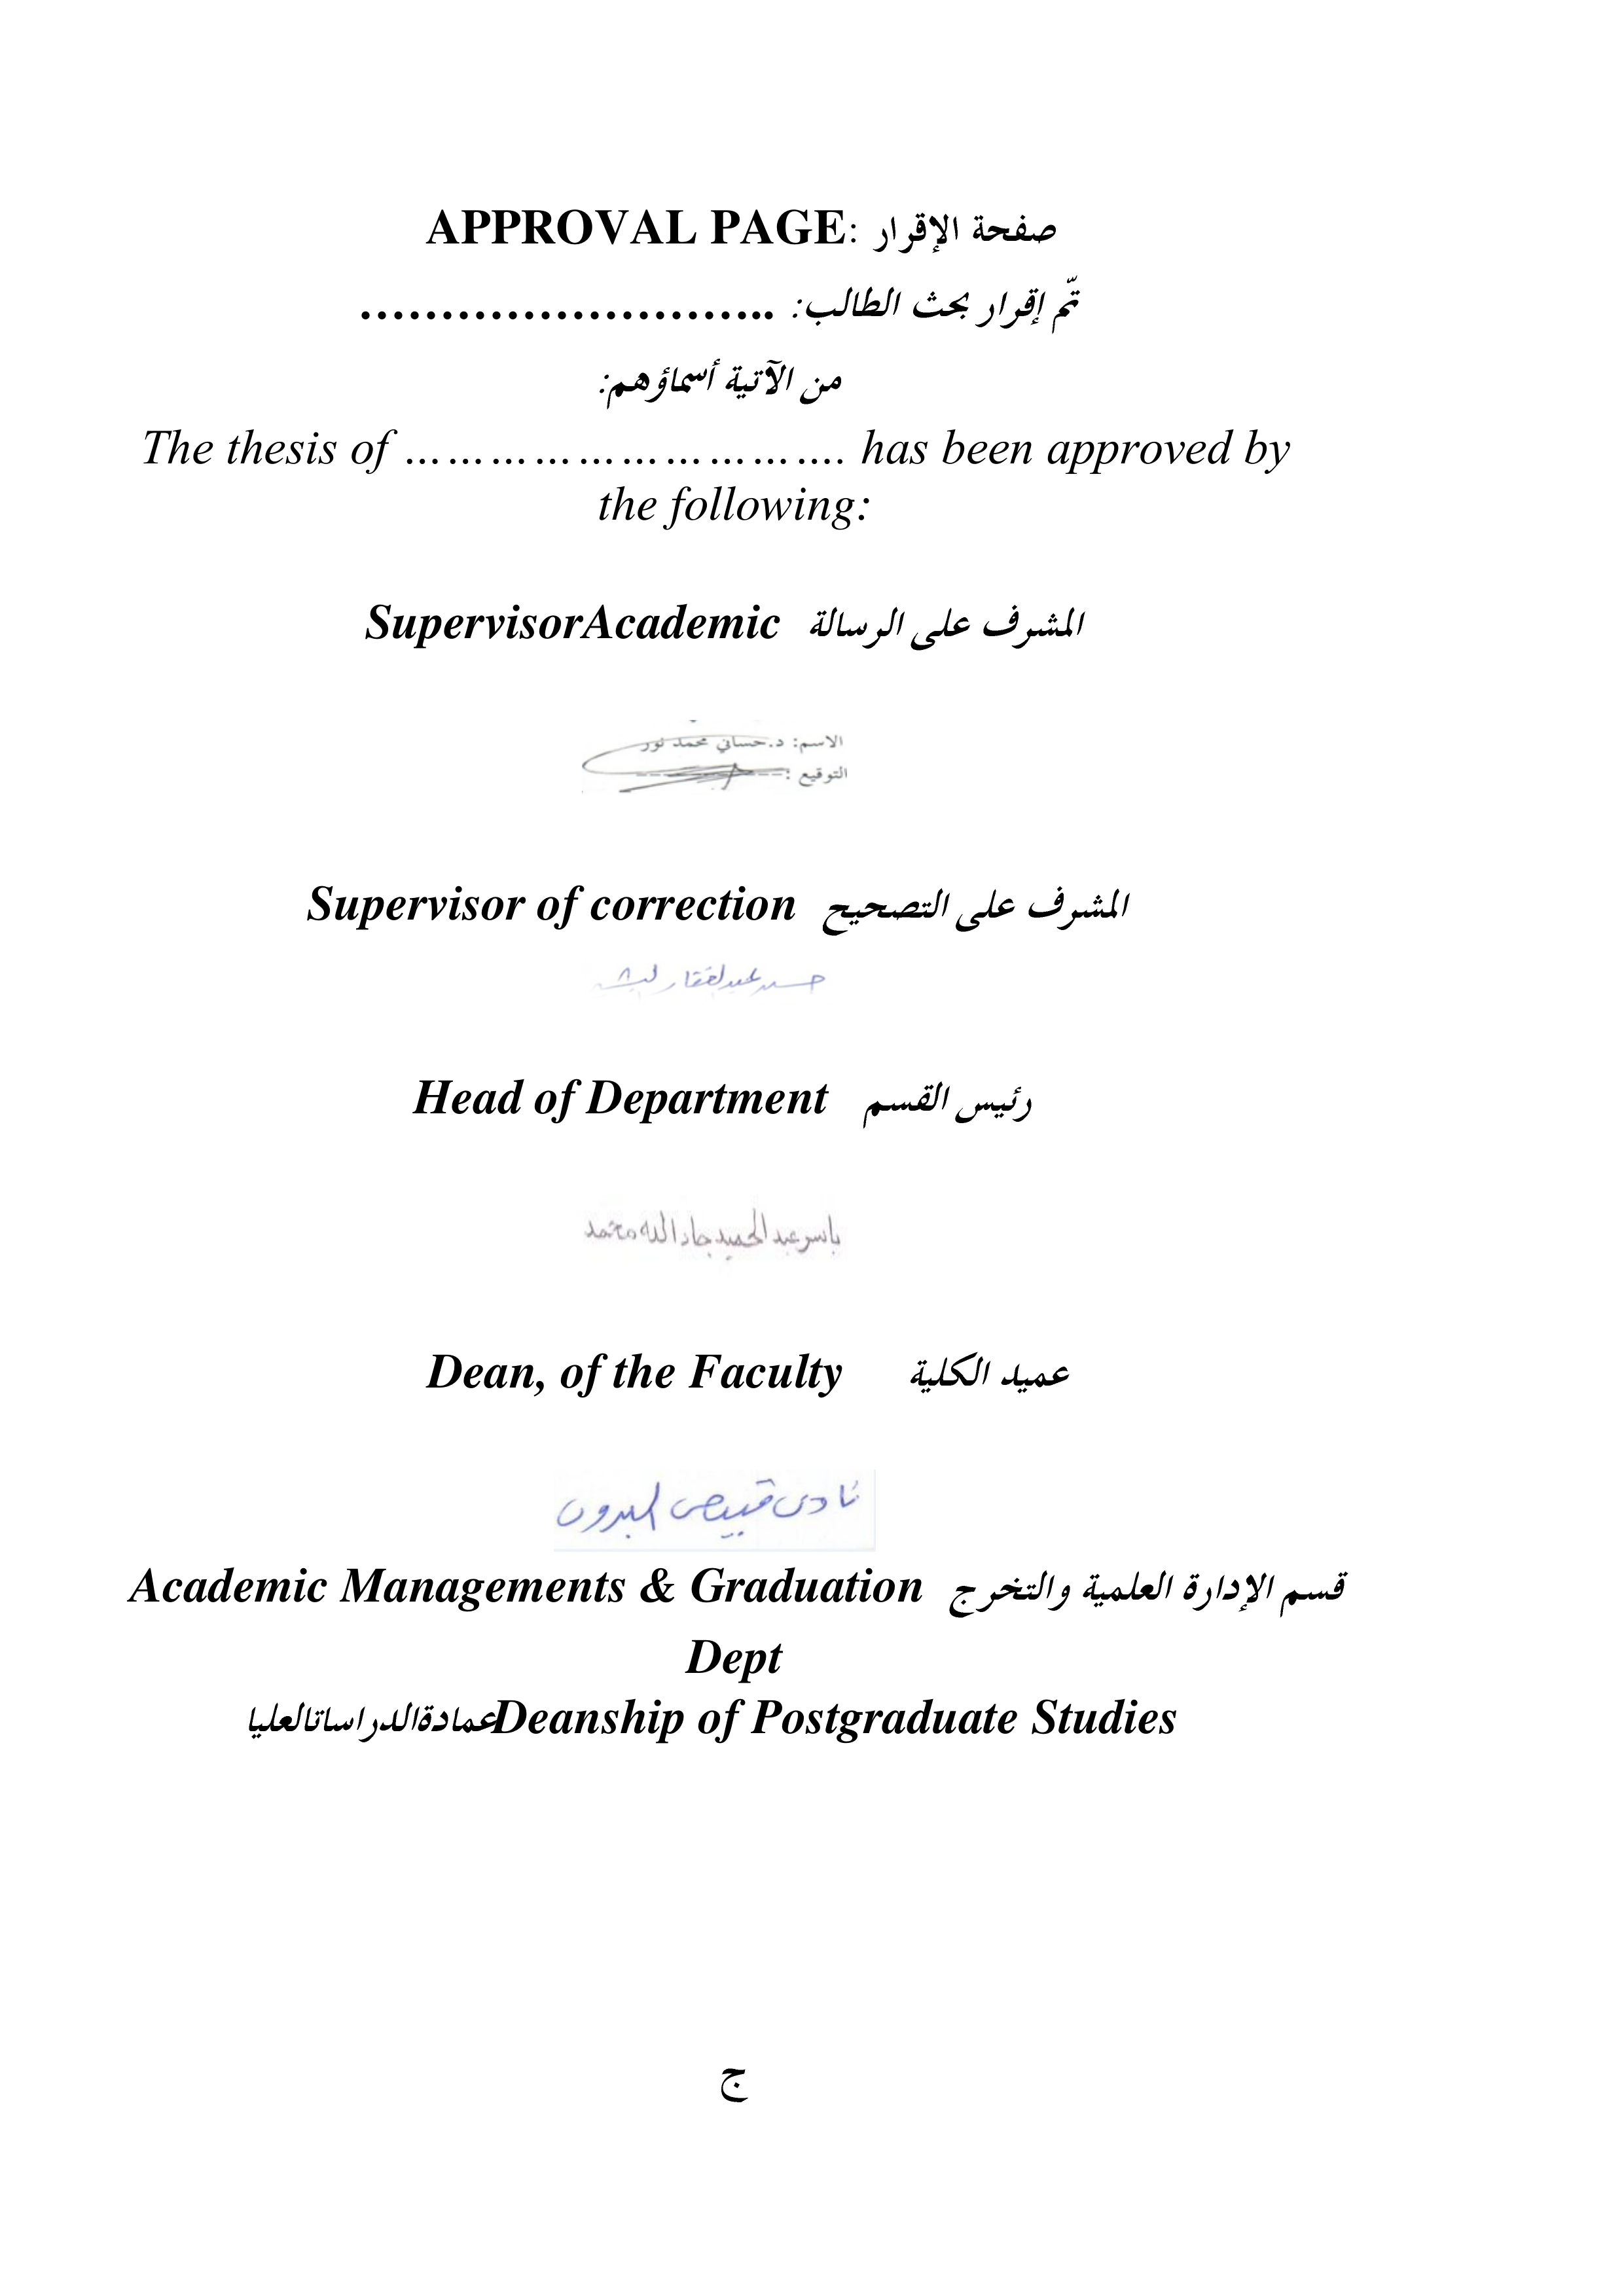 صفحة الإقرار :APPROVAL PAGE
تمّ إقرار بحث الطالب: ………………………..
من الآتية أسماؤهم:
The thesis of …………………………. has been approved by
the following:
SupervisorAcademic المشرف على الرسالة
الاسم: د.حساني محمد نور
التوقيع :
Supervisor of correction المشرف على التصحيح
عبدالغفار
Head of Department رئيس القسم
ياسر عبدالحميد جادالله محمد
Dean, of the Faculty عميد الكلية
نادى قبيصى البدوى
Academic Managements & Graduation قسم الإدارة العلمية والتخرج
Dept
عمادةالدراساتالعلياDeanship of Postgraduate Studies
ج